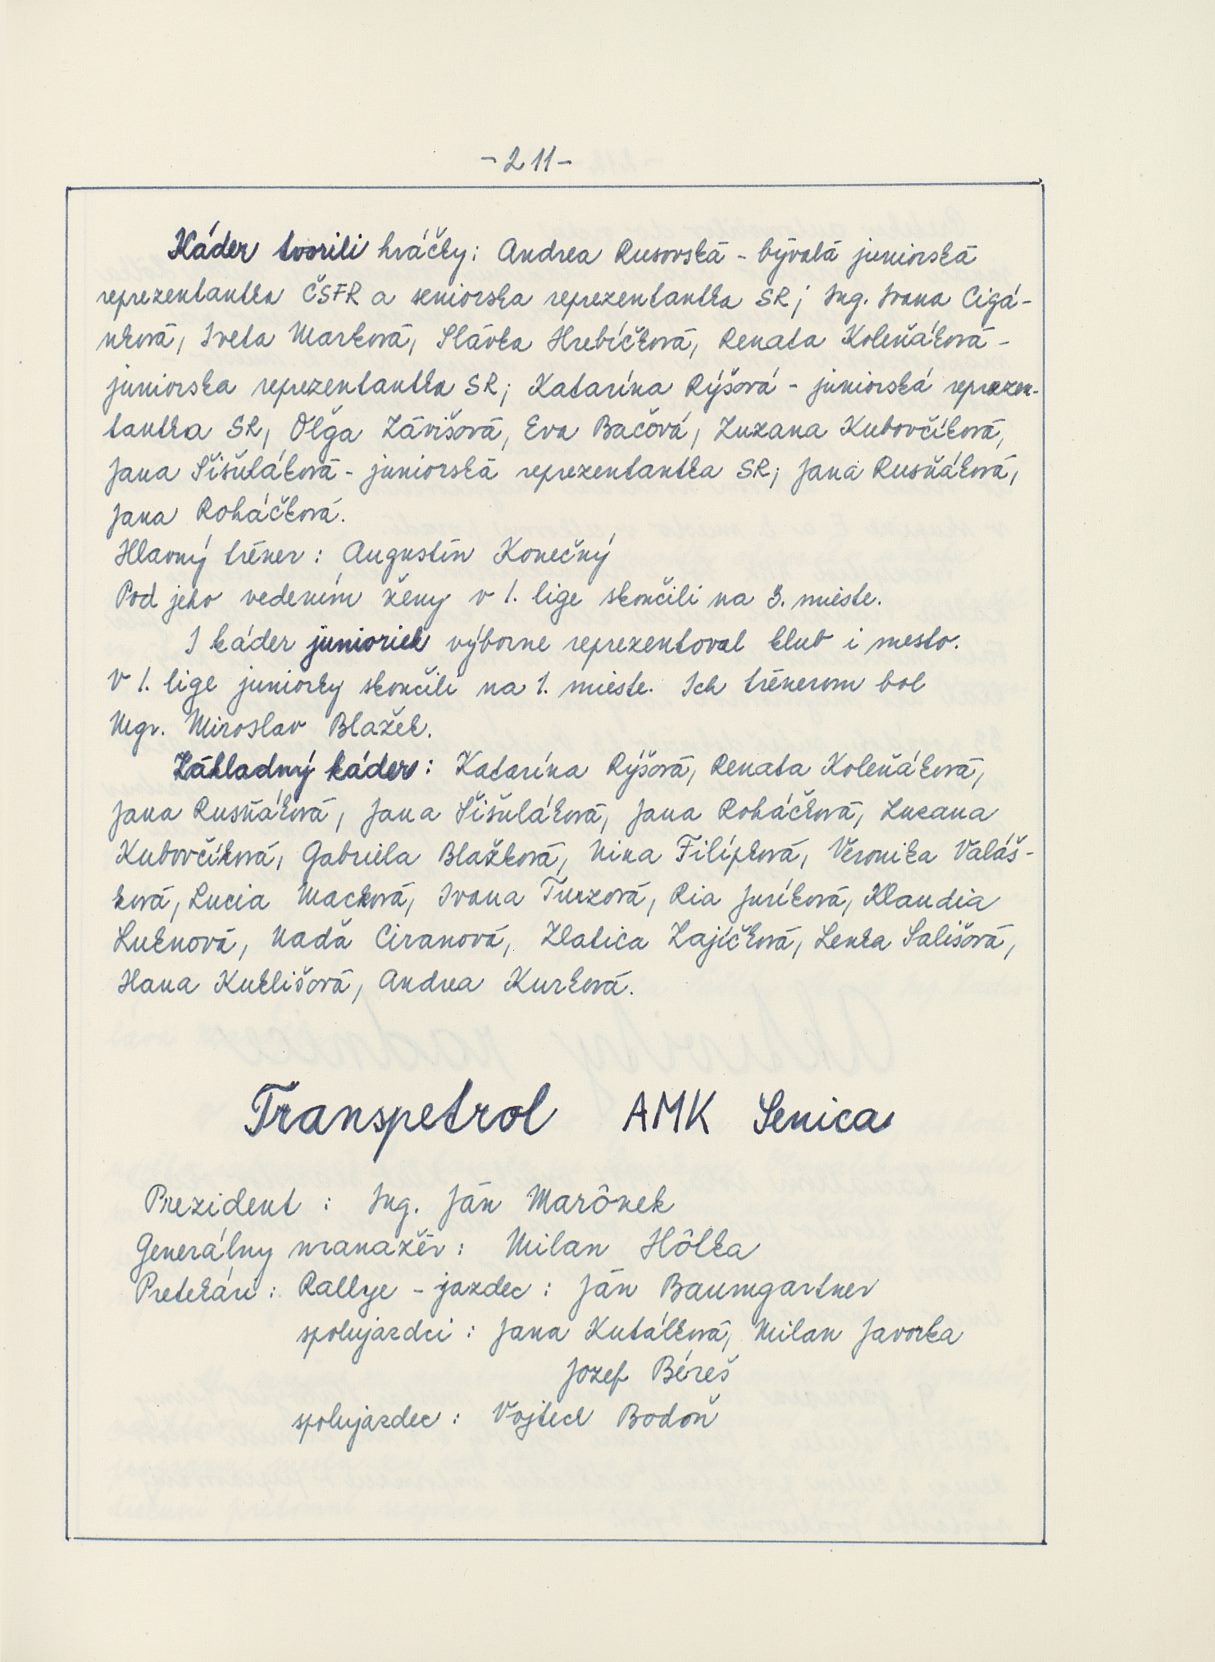 -211-
Káder tvorili hráčky: Andrea Rusovská - bývalá juniorská
reprezentantka ČSFR a seniorska reprezentantka SR; Ing. Ivana Cigá-
nková, Iveta Marková, Slávka Hrebíčková, Renata Koleňáková -
juniorska reprezentantka SR; Katarína Rýšová - juniorská reprezen-
tantka SR, Oľga Závišová, Eva Bačová, Zuzana Kubovčíková,
Jana Šišuláková - juniorská reprezentantka SR; Jana Rusňáková,
Jana Roháčková.
Hlavný tréner: Augustín Konečný
Pod jeho vedením ženy v 1. lige skončili na 3. mieste.
I káder junioriek výborne reprezentoval klub i mesto.
V 1. lige juniorky skončili na 1. mieste. Ich trénerom bol
Mgr. Miroslav Blažek.
Základný káder: Katarína Rýšová, Renata Koleňáková,
Jana Rusňáková, Jana Šišuláková, Jana Roháčková, Zuzana
Kubovčíková, Gabriela Blažková, Nina Filípková, Veronika Valáš-
ková, Lucia Macková, Ivana Turzová, Ria Juríková, Klaudia
Luknová, Naďa Ciranová, Zlatica Zajíčková, Lenka Sališová,
Hana Kuklišová, Andrea Kurková.
Transpetrol AMK Senica
Prezident: Ing. Ján Marônek
Generálny manažér: Milan Hôlka
Pretekári: Rallye - jazdec: Ján Baumgartner
spolujazdci: Jana Kutálková, Milan Javorka
Jozef Béreš
spolujazdec: Vojtech Bodoň